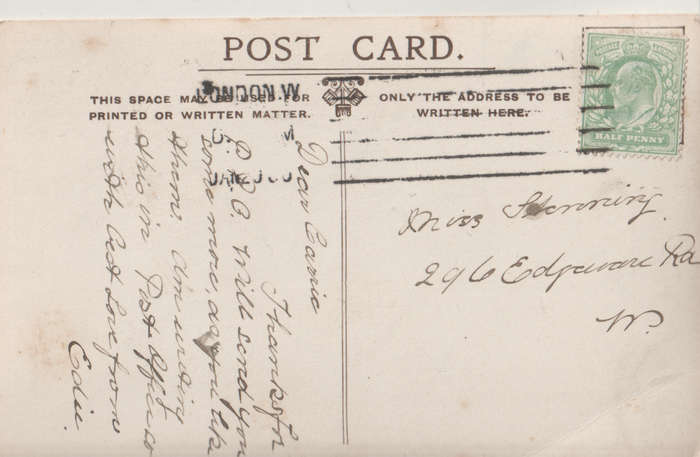 POST CARD.
THIS SPACE MAY BE USED FOR
PRINTED OR WRITTEN MATTER.
ONLY THE ADDRESS TO BE
WRITTEN HERE.
LONDON W
HALF PENNY
Dear Carrie
Thanks for
P.P.C. Will send you
some more, as you like
them. Am writing
this in Post Office
with best love from
Edie.
Miss
296 Edgware Rd
W.